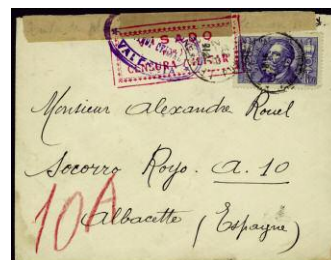 CENSURA
Monsieur Alexandre Rouel
Socorro Royo. A. 10
10A
Albacette (Espagne)